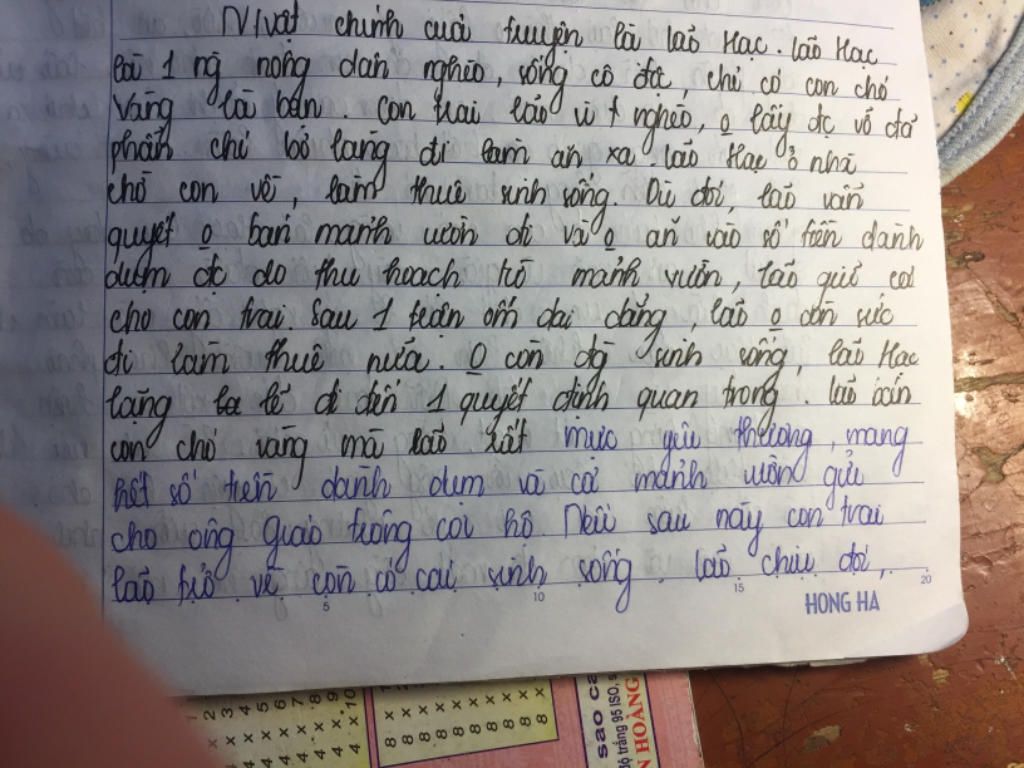 N/vật chính của truyện là lão Hạc. lão Hạc
là 1 ng nông dân nghèo, sống cô độc, chỉ có con chó
Vàng là bạn. Con trai lão vì nghèo, o lấy đc vợ đã
phẫn chí bỏ làng đi làm ăn xa lão Hạc ở nhà
chờ con về, làm thuê sinh sống. Dù đói, lão vẫn
quyết o bán mảnh vườn đi và o ăn vào số tiền dành
dụm đc do thu hoạch từ mảnh vườn, lão giữ cả
cho con trai. Sau 1 trận ốm dai dẳng, lão o đủ sức
đi làm thuê nữa. O còn đg sinh sống, lão Hạc
lặng lẽ đi đến 1 quyết định quan trọng. lão bán
con chó vàng mà lão rất mực yêu thương, mang
hết số tiền dành dụm và cả mảnh vườn gửi
cho ông giáo trông coi hộ. Nếu sau này con trai
lão trở về còn có cái sinh sống. lão chịu đói,
5 10 15 20
HONG HA
sao ca
độ trắng 95 ISO, s
N HOÀNG